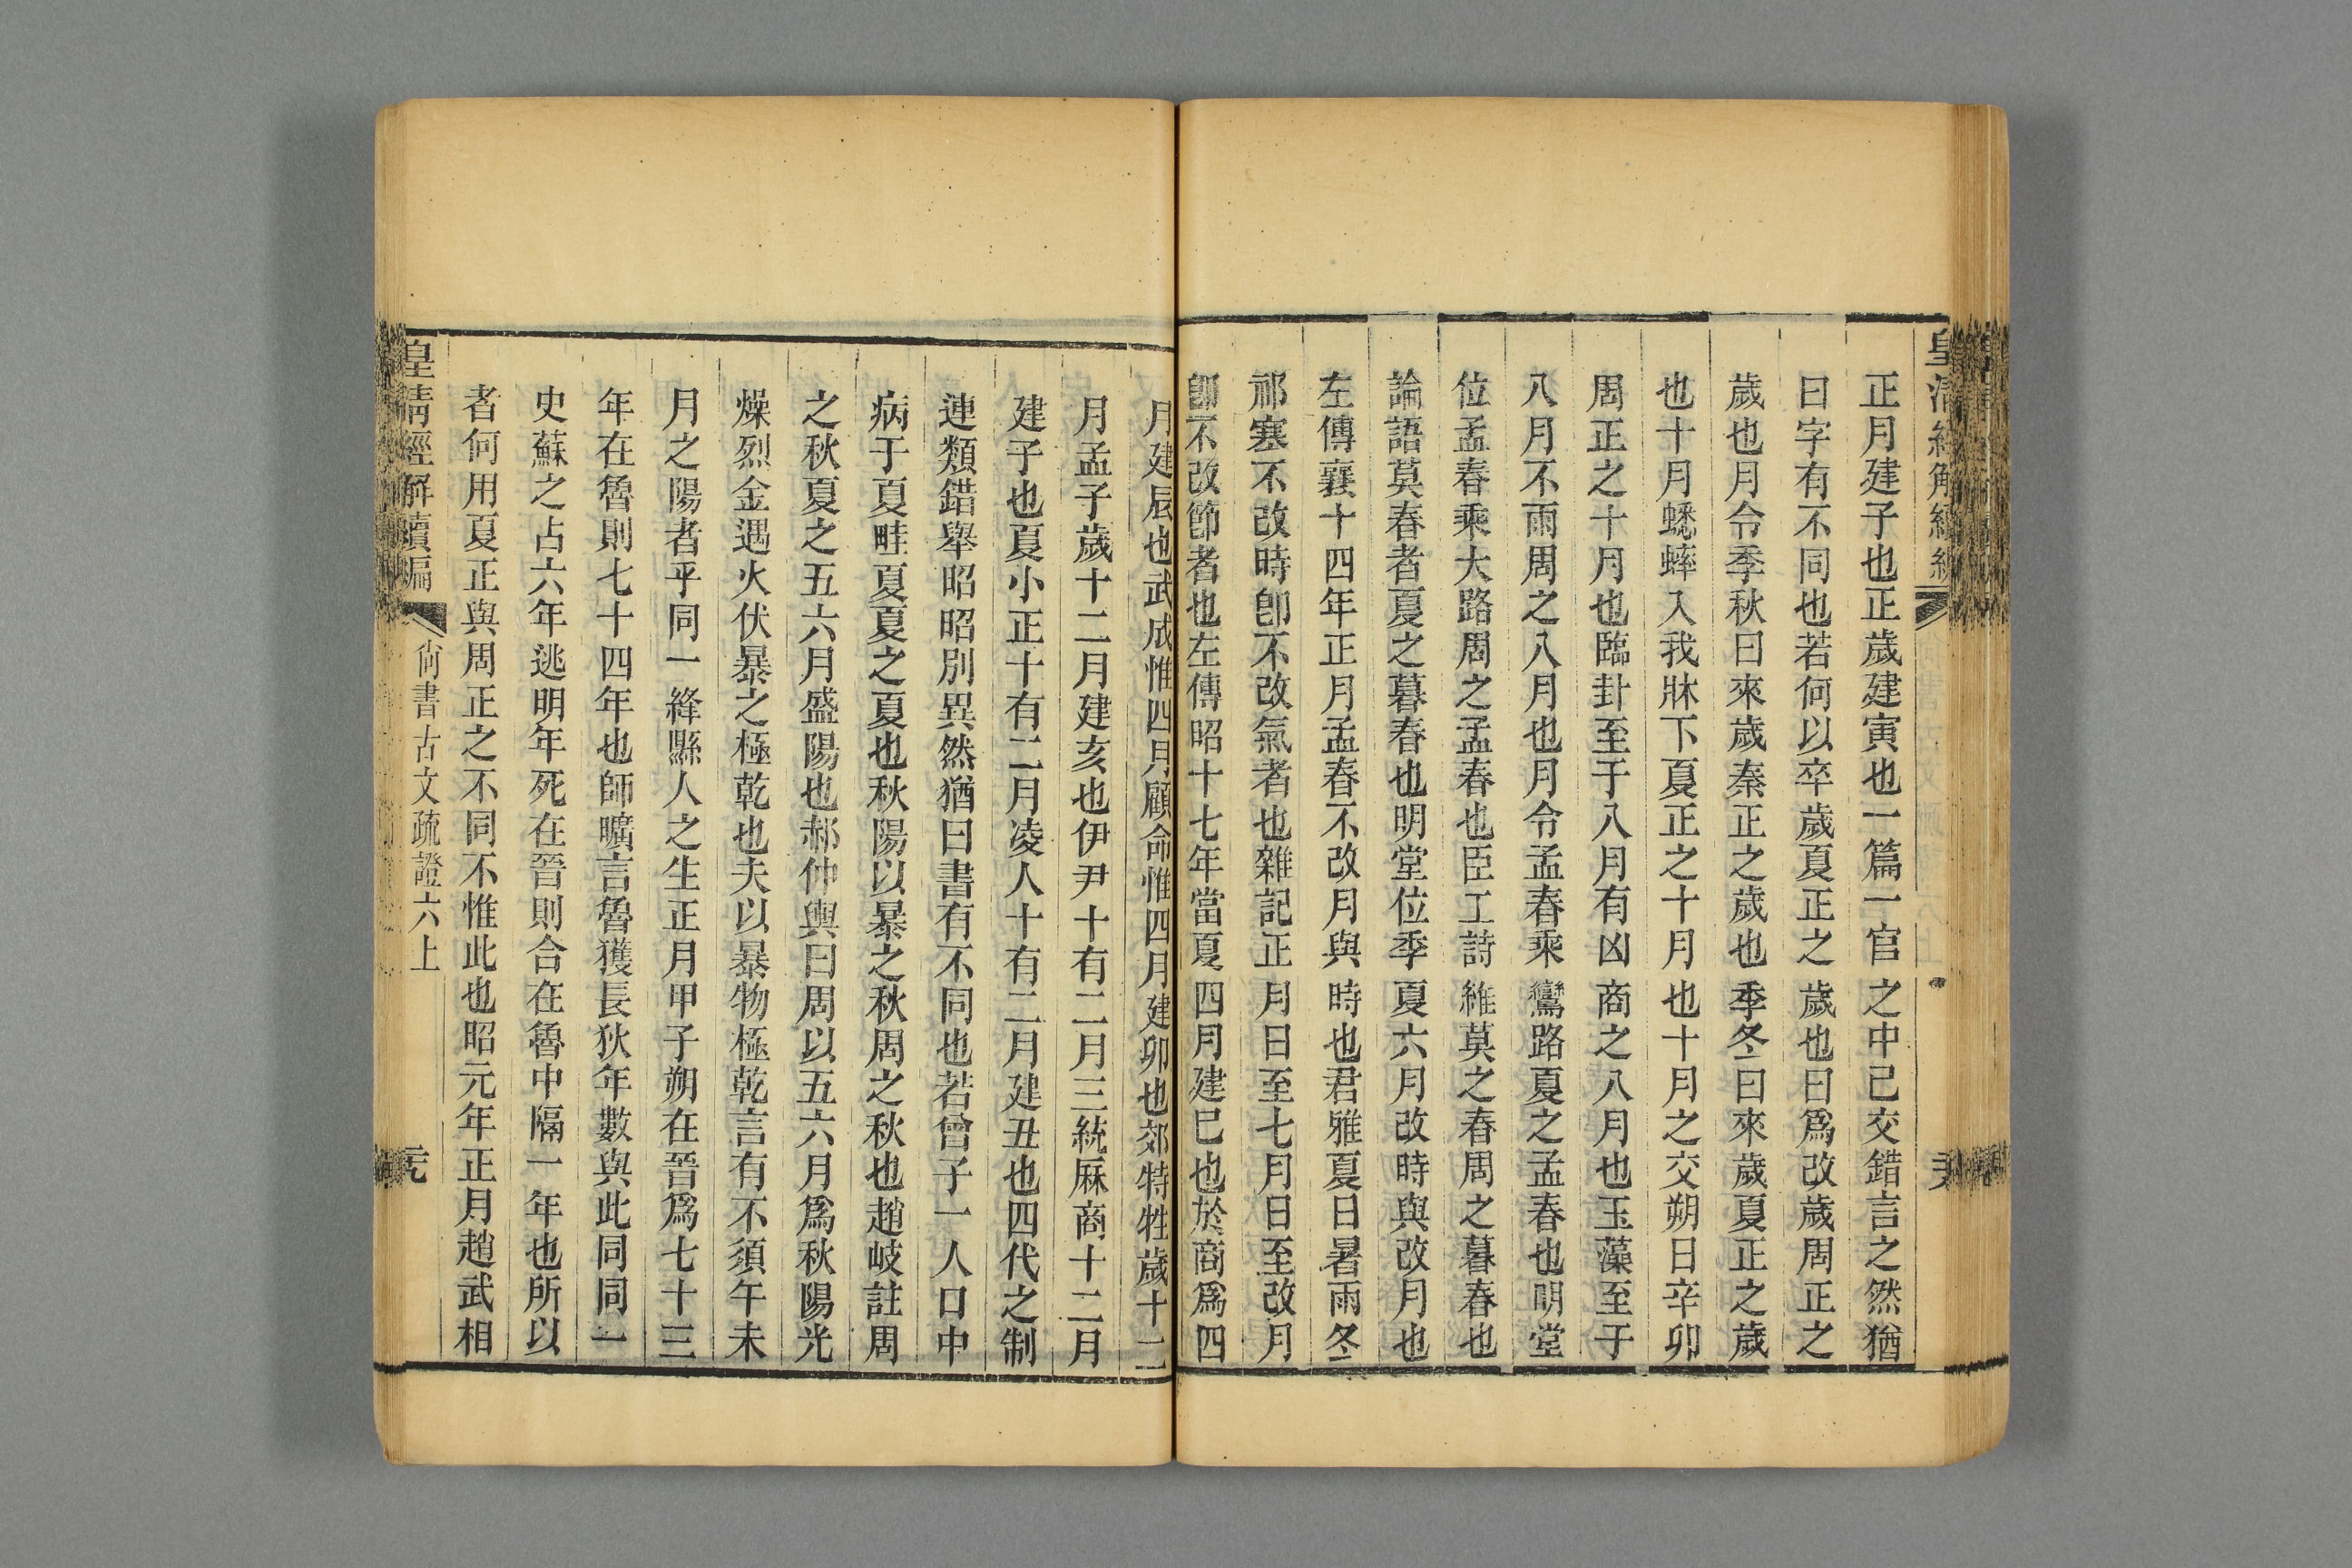 正月建子也正歲建寅也一篇一官之中已交錯言之然猶
曰字有不同也若何以卒歲夏正之歲也曰爲改歲周正之
歲也月令季秋曰來歲秦正之歲也季冬曰來歲夏正之歲
也十月蟋蟀入我牀下夏正之十月也十月之交朔日辛卯
周正之十月也臨卦至于八月有凶商之八月也玉藻至于
八月不雨周之八月也月令孟春乘鸞路夏之孟春也明堂
位孟春乘大路周之孟春也臣工詩維莫之春周之暮春也
論語莫春者夏之暮春也明堂位季夏六月改時與改月也
左傳襄十四年正月孟春不改月與時也君雅夏日暑雨冬
祁寒不改時卽不改氣者也雜記正月日至七月日至改月
卽不改節者也左傳昭十七年當夏四月建巳也於商爲四
月建辰也武成惟四月顧命惟四月建卯也郊特牲歲十二
月孟子歲十二月建亥也伊尹十有二月三統厤商十二月
建子也夏小正十有二月凌人十有二月建丑也四代之制
連類錯舉昭昭別異然猶曰書有不同也若曾子一人口中
病于夏畦夏夏之夏也秋陽以暴之秋周之秋也趙岐註周
之秋夏之五六月盛陽也郝仲輿曰周以五六月爲秋陽光
燥烈金遇火伏暴之極乾也夫以暴物極乾言有不須午未
月之陽者乎同一絳縣人之生正月甲子朔在晉爲七十三
年在魯則七十四年也師曠言魯獲長狄年數與此同同一
史蘇之占六年逃明年死在晉則合在魯中隔一年也所以
者何用夏正與周正之不同不惟此也昭元年正月趙武相
皇清經解續編
尚書古文疏證六上